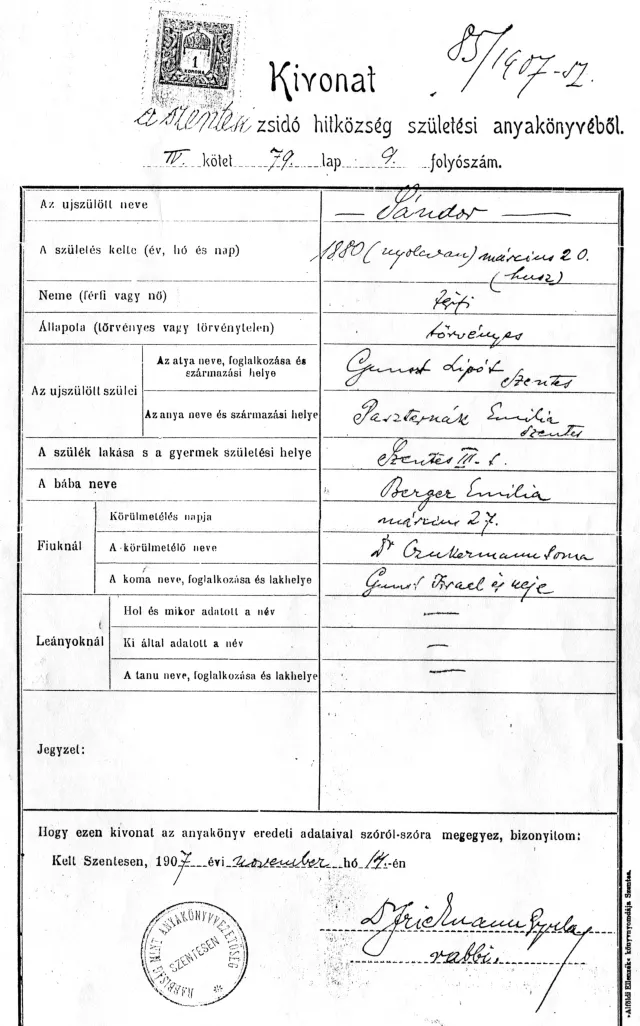 1
KORONA
85/1907-sz.
Kivonat
a szentesi zsidó hitközség születési anyakönyvéből.
IV. kötet 79. lap 9. folyószám.
Az ujszülött neve — Sándor —
A születés kelte (év, hó és nap) 1880 (nyolcvan) március 20.
(husz)
Neme (férfi vagy nő) férfi
Állapota (törvényes vagy törvénytelen) törvényes
Az ujszülött szülei
Az atya neve, foglalkozása és
származási helye
Gunst Lipót
Szentes
Az anya neve és származási helye Paszternák Emilia
Szentes
A szülék lakása s a gyermek születési helye Szentes III. t.
A bába neve Berger Emilia
Fiuknál
Körülmetélés napja március 27.
A körülmetélő neve Dr Czukermann Soma
A koma neve, foglalkozása és lakhelye Gunst Izrael és neje
Leányoknál
Hol és mikor adatott a név —
Ki által adatott a név —
A tanu neve, foglalkozása és lakhelye —
Jegyzet:
Hogy ezen kivonat az anyakönyv eredeti adataival szóról-szóra megegyez, bizonyitom:
Kelt Szentesen, 1907 évi november hó 14.-én
Dr Frickmann Gyula
rabbi.
RABBISÁG MINT ANYAKÖNYVVEZETŐSÉG
SZENTESEN
»Alföldi Ellenzék« könyvnyomdája Szentes.